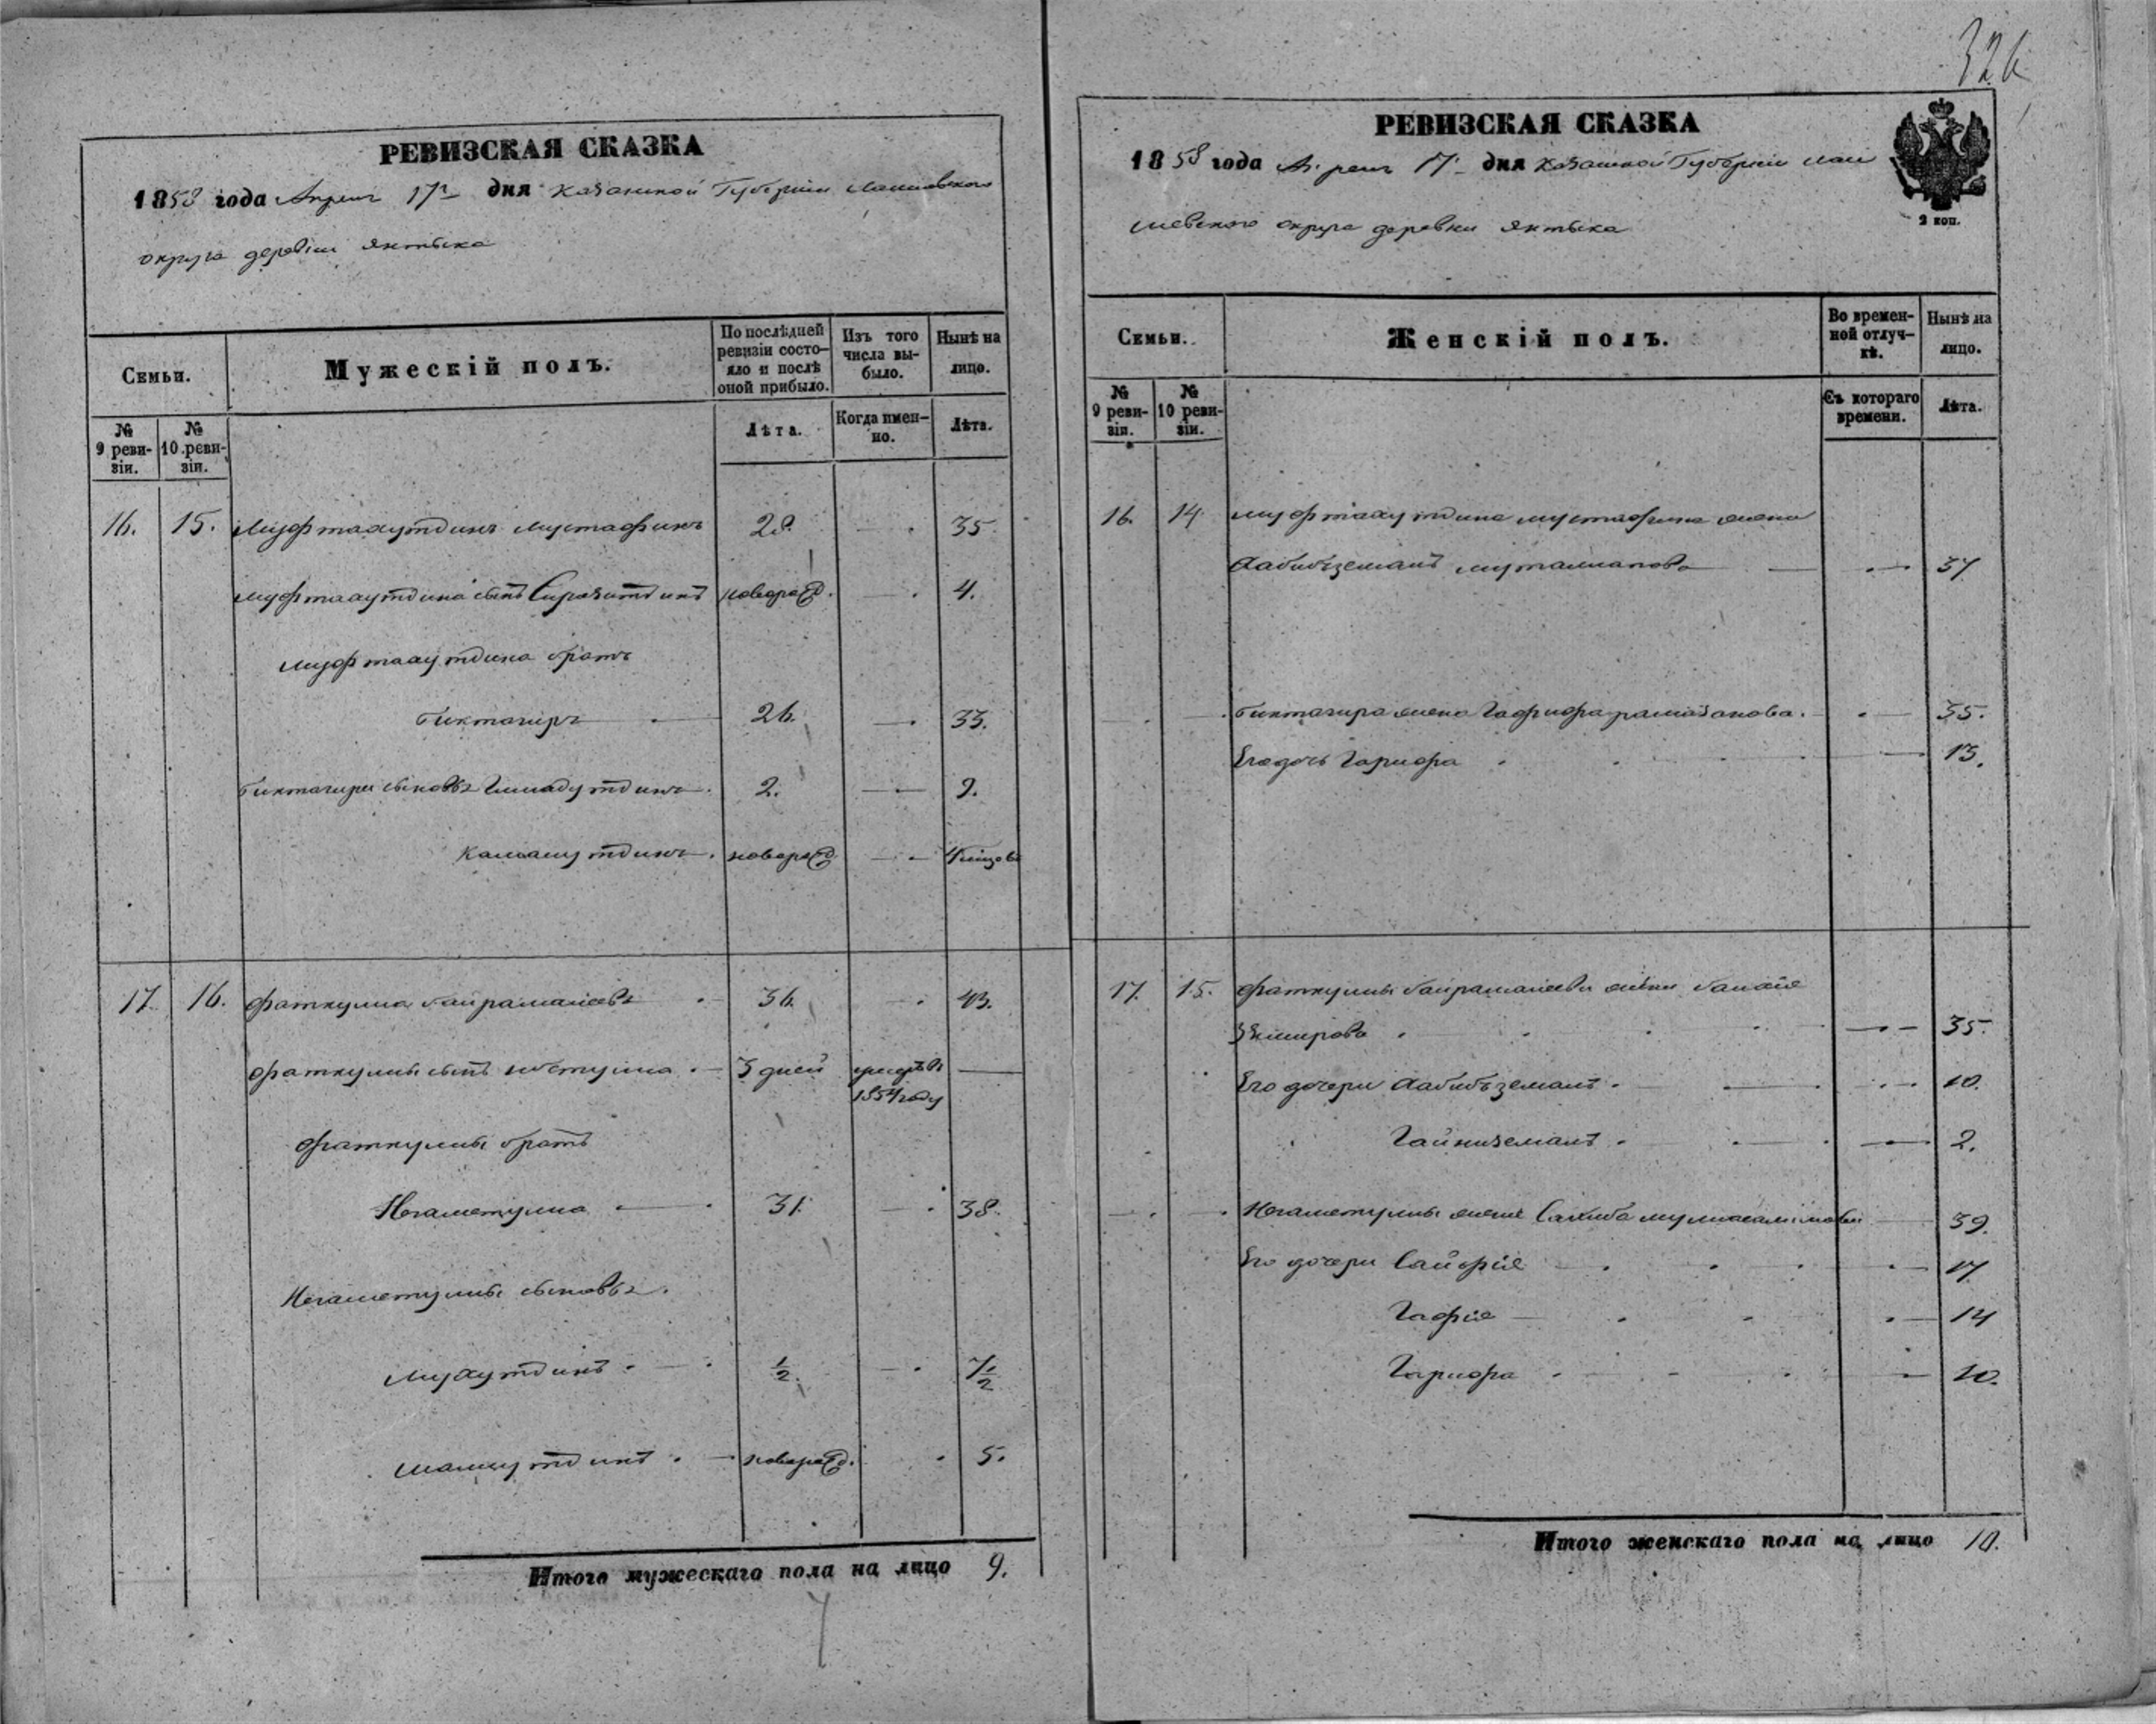 326
РЕВИЗСКАЯ СКАЗКА
1858 года Апреля 17го дня Казанской Губерніи Лаишевского
округа деревни Янтыка
Семьи.
Мужескій полъ.
По послѣдней ревизіи состо-
яло и послѣ оной прибыло.
Изъ того числа вы-
было.
Нынѣ на лицо.
№ 9 реви-
зіи.
№ 10 реви-
зіи.
Лѣта.
Когда имен-
но.
Лѣта.
16. 15. Муфтахутдинъ Мустафинъ 28. 35.
Муфтахутдина сынъ Сиразитдинъ новорожд. 4.
Муфтахутдина братъ
Биктагиръ 26. 33.
Биктагира сыновья Гимадутдинъ 2. 9.
Камалутдинъ новорожд.
17. 16. Фаткулла Байрамалеевъ 36. 43.
Фаткуллы сынъ 3 дней умеръ въ
1854 году
Фаткуллы братъ
Негаметулла 31. 38.
Негаметуллы сыновья.
Мухутдинъ ½. 7½
новорожд. 5.
Итого мужескаго пола на лицо 9.
РЕВИЗСКАЯ СКАЗКА
1858 года Апреля 17го дня Казанской Губерніи Лаи
шевского округа деревни Янтыка
2 коп.
Семьи.
Женскій полъ.
Во времен-
ной отлуч-
кѣ.
Нынѣ на лицо.
№ 9 реви-
зіи.
№ 10 реви-
зіи.
Съ котораго времени.
Лѣта.
16. 14. Муфтахутдина Мустафина жена
Хабибъземалъ 37
Биктагира жена Гафифа Рамазанова. 35.
Его дочь Гарифа 13.
17. 15. Фаткуллы Байрамалеева жена
35.
Его дочери Хабибъземалъ. 10.
Гайниземалъ. 2.
Негаметуллы жена Сахиба 39.
Его дочери Сайфія 17.
Гафія 14
Гарифа 10.
Итого женскаго пола на лицо 10.